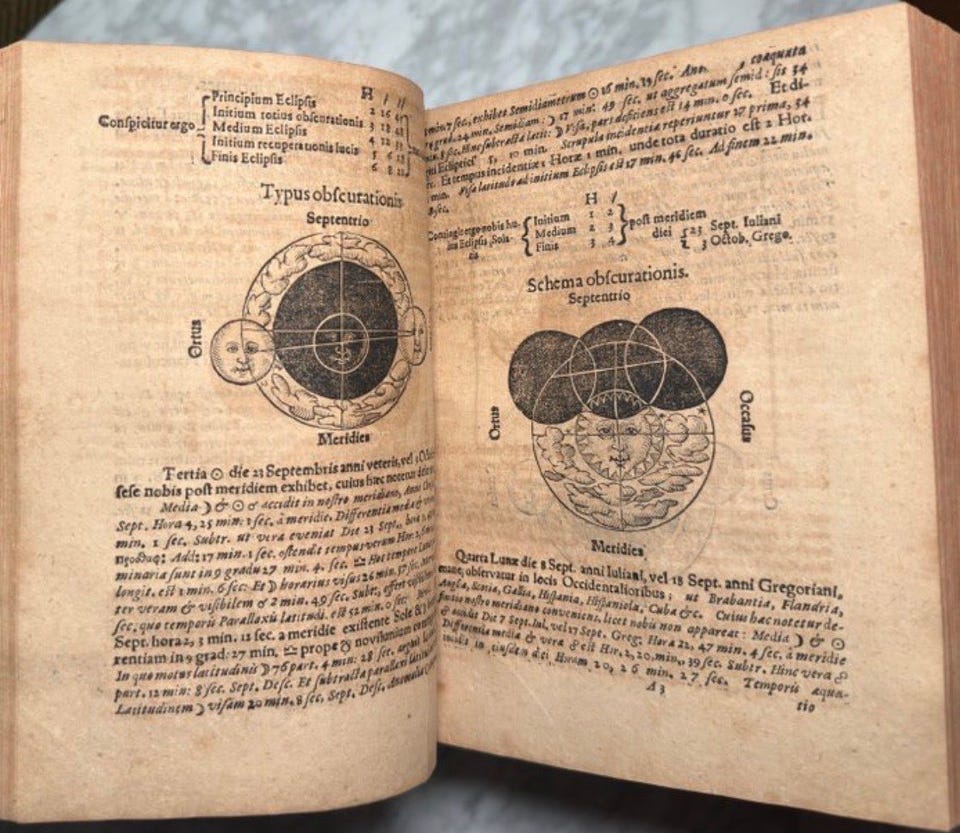 H / //
Principium Eclipsis 2 16
Initium totius obscurationis 3 18 48
Conspicitur ergo Medium Eclipsis 4 12
Initium recuperationis lucis 5 6
Finis Eclipsis 6 8
Typus obscurationis
Septentrio
Ortus
Meridies
Tertia ☉ die 23 Septembris anni veteris, vel
sese nobis post meridiem exhibet, cuius hæc
Media ☽ & ☉ ☌ accidit in nostro meridiano,
Sept. Hora 4, 25 min: 1 sec. à meridie. Differentia media &
min. 1 sec. Subtr. ut vera eveniat Die 23 Sept.,
Add: 17 min. 1 sec. ostendit tempus verum Hor: 2,
minaria sunt in 9 gradu 27 min. 4. sec. ♎ Hoc tempore
longit. est 1 min. 6 sec: Et ☽ horarius visus 26 min.
ter veram & visibilem ☌ 2 min. 49 sec. Subtr,
sec, quo temporis Parallaxis latitud. est 52 min. 0 sec.
Sept. hora 2, 3 min. 12 sec. a meridie existente Sole &
rentiam in 9 grad: 27 min. ♎ prope ☋ novilunium
In quo motus latitudinis ☽ 76 part. 4 min: 28 sec.
part. 12 min: 8 sec. Sept. Desc. Et subtracta parallaxi
Latitudinem ☽ visam 20 min. 8 sec. Sept. Desc.
coæquata
min. 7 sec, exhibet Semidiametrum ☉ 16 min. 39 sec.
grad. 24 min, Semidiam: ☽ 17 min: 49 sec. ut aggregatum semid: sit 34
8 sec. Hinc subtracta latit: ☽ Visa, part deficiens est 14 min. 0 sec. Et di-
Ecliptici 5, 10 min. Scrupula incidentiæ reperiuntur 27 prima, 54
Et tempus incidentiæ 1 Horæ 1 min. unde tota duratio est 2 Hor.
min. Visa latitudo ad initium Eclipsis est 17 min. 46 sec. Ad finem 22 min.
8 sec.
H /
Contingit ergo nobis hu- Initium 1 2 post meridiem
ius Eclipsis Sola- Medium 2 3 diei 23 Sept. Iuliani
ris Finis 3 4 3 Octob. Grego.
Schema obscurationis.
Septentrio
Ortus
Occasus
Meridies
Quarta Lunæ die 8 Sept. anni Iuliani, vel 18 Sept. anni Gregoriani,
mane, observatur in locis Occidentalioribus; ut Brabantia, Flandria,
Anglia, Scotia, Gallia, Hispania, Hispaniola, Cuba &c. Cuius hæc notetur de-
finitio nostro meridiano conveniens, licet nobis non appareat: Media ☽ & ☉
☍ accidit Die 7 Sept. Iul, vel 17 Sept. Greg, Hora 22, 47 min. 4 sec. à meridie
Differentia media & vera ☍ est Hor. 2, 20, min. 39 sec. Subtr. Hinc vera ☍
incidit in eiusdem diei Horam 20, 26 min. 27 sec. Temporis æqua-
A 3
tio